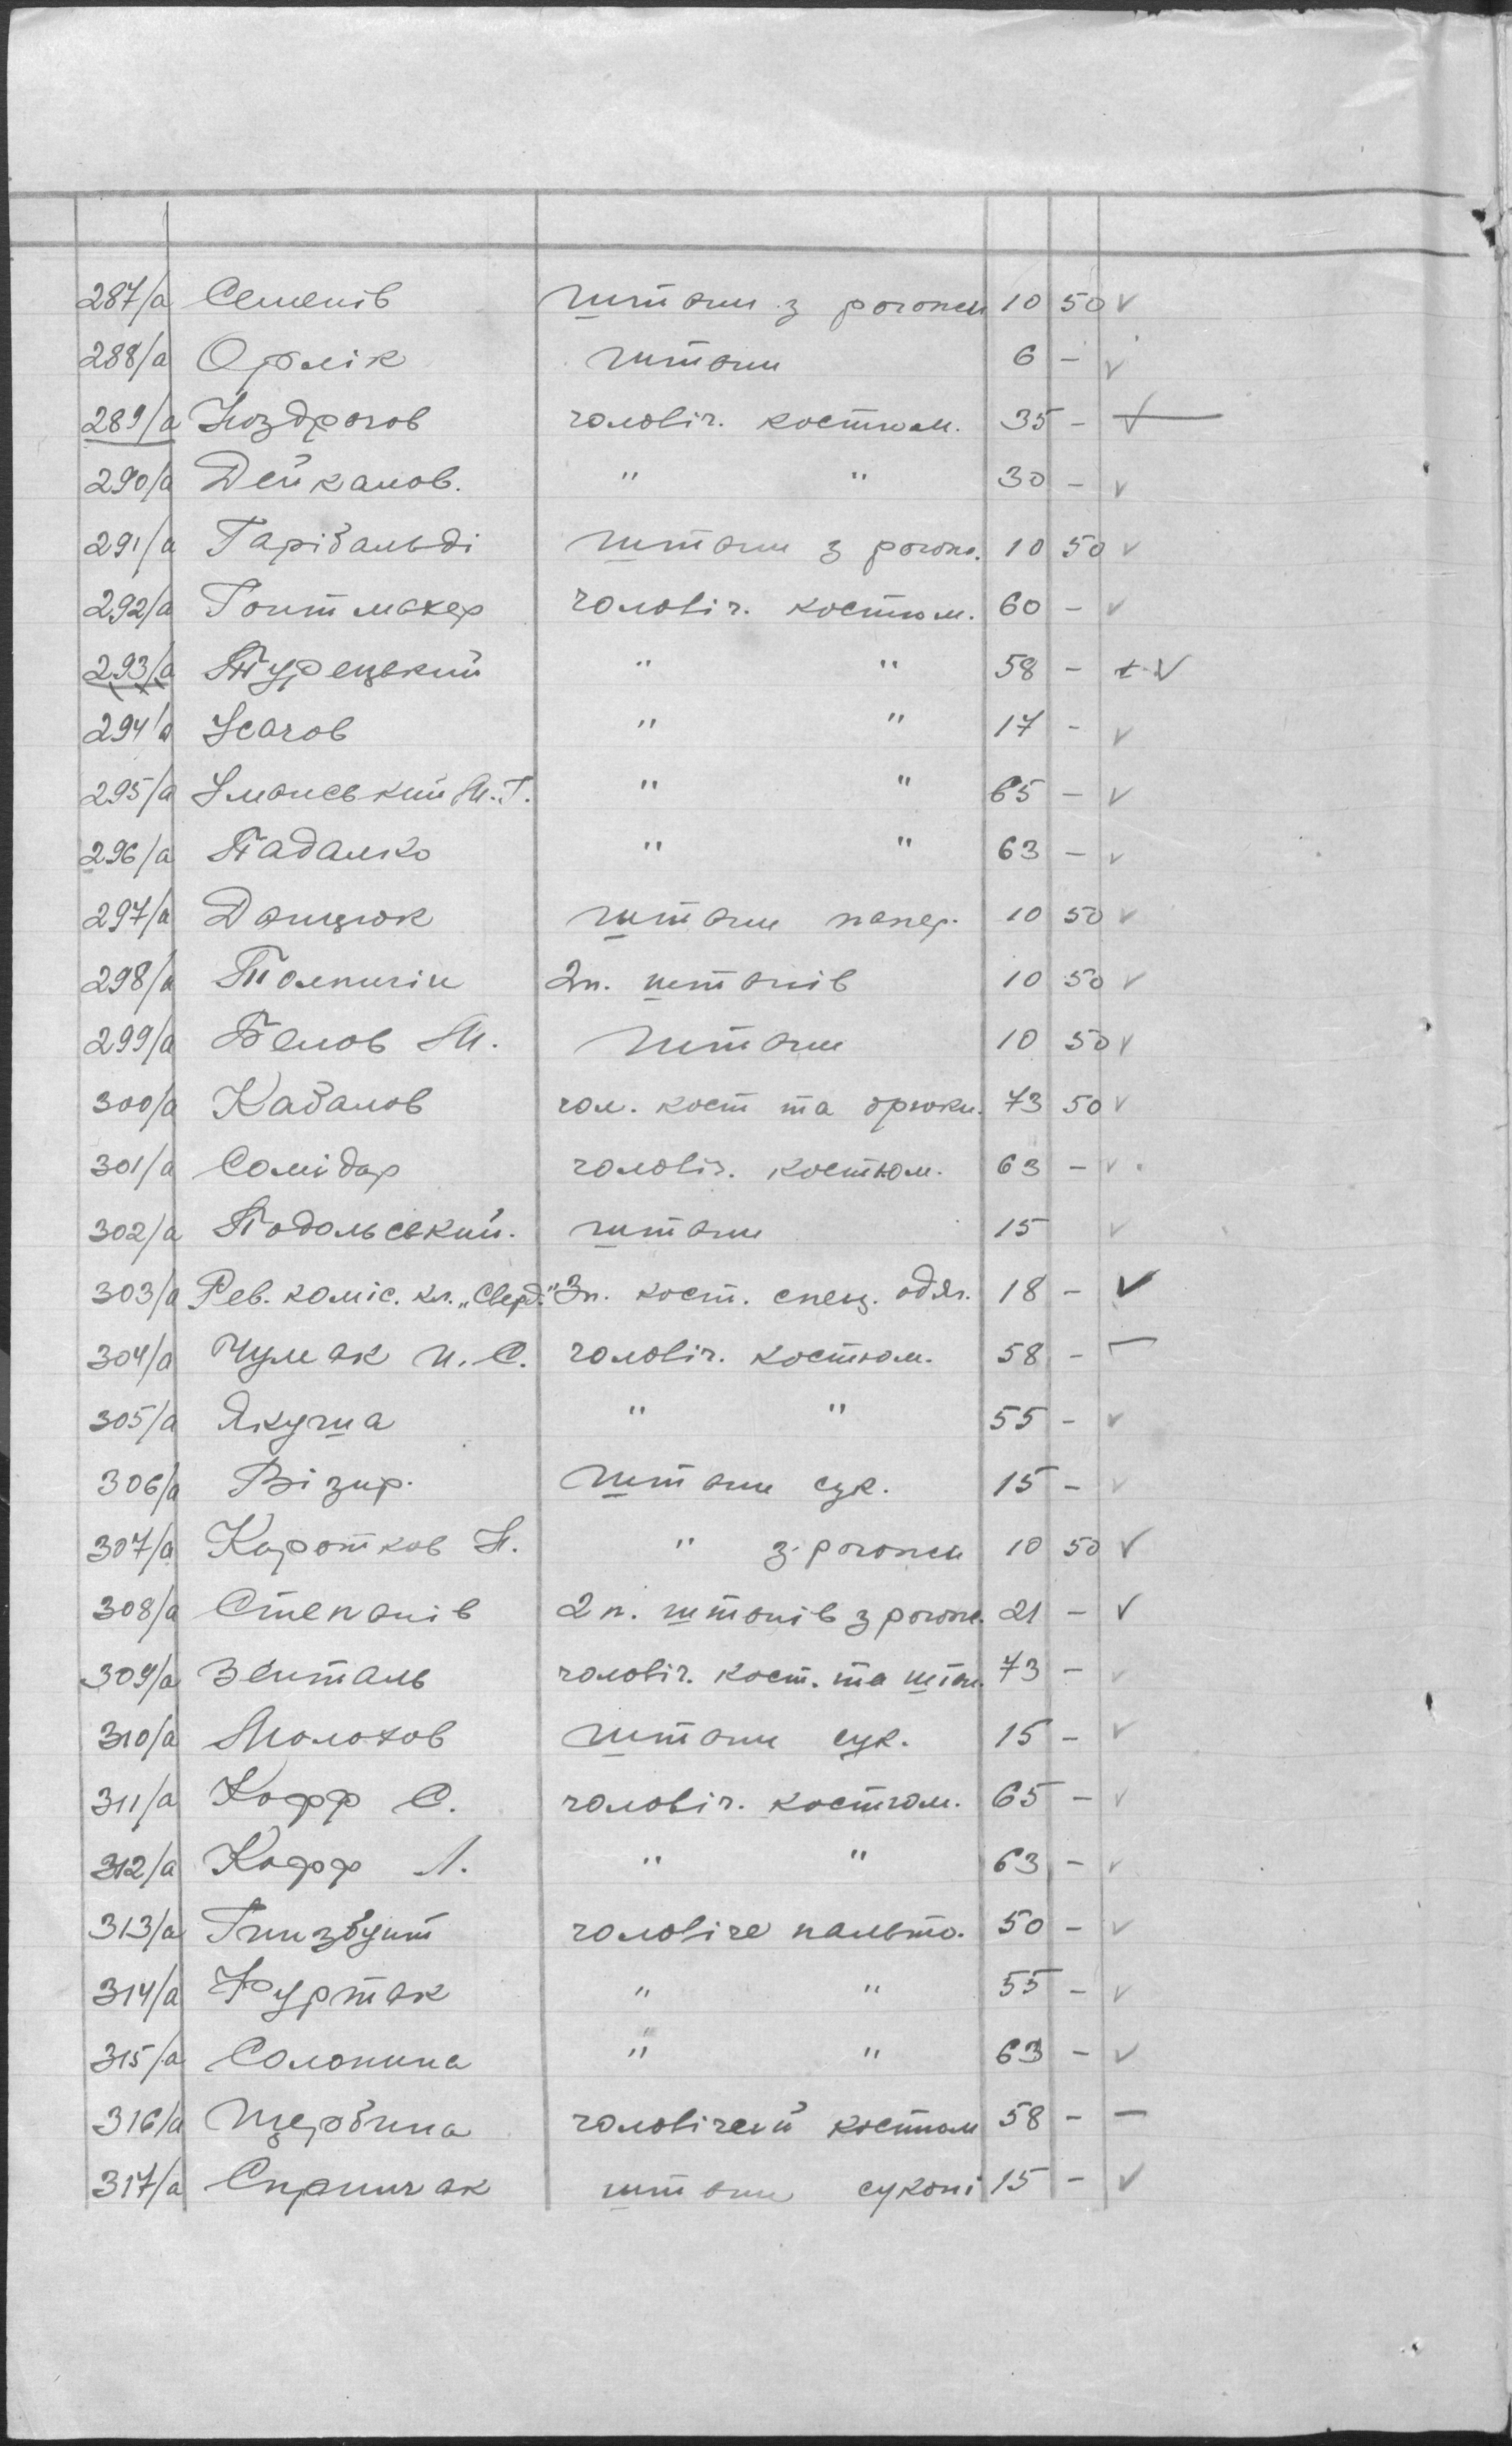 287/а Семенів штани з рогожи 10 50 v
288/а Орлік штани 6 - v
289/а Ноздрогов чоловіч. костюм. 35 - v
290/а Дейкалов. " " 30 - v
291/а Гарібальді штани з рогож. 10 50 v
292/а Гонтмахер чоловіч. костюм. 60 - v
293/а Турецький " " 58 - + v
294/а Усачов " " 17 - v
295/а Уманський М. Г. " " 65 - v
296/а Падалко " " 63 - v
297/а Данцюк штани 10 50 v
298/а Толпигін 2 п. штанів 10 50 v
299/а Белов М. штани 10 50 v
300/а Кабалов чол. кост та брюки. 73 50 v
301/а Солідар чоловіч. костюм. 63 - v
302/а Подольський. штани 15 v
303/а Рев. коміс. кл. „Сверд." 3 п. кост. спец. одяг. 18 - v
304/а Чумак И. С. чоловіч. костюм. 58 - –
305/а Якуша " " 55 - v
306/а Візир. штани сук. 15 - v
307/а Коротков Н. " з рогожи 10 50 v
308/а Степанів 2 п. штанів з рогож. 21 - v
309/а Зенталь чоловіч. кост. та штан. 73 - v
310/а Молотов штани сук. 15 - v
311/а Кофф С. чоловіч. костюм. 65 - v
312/а Кофф Л. " " 63 - v
313/а Гинзбунт чоловіче пальто. 50 - v
314/а Фуртак " " 55 - v
315/а Солонина " " 63 - v
316/а Щербина чоловічий костюм 58 - –
317/а Спринчак штани суконі 15 - v